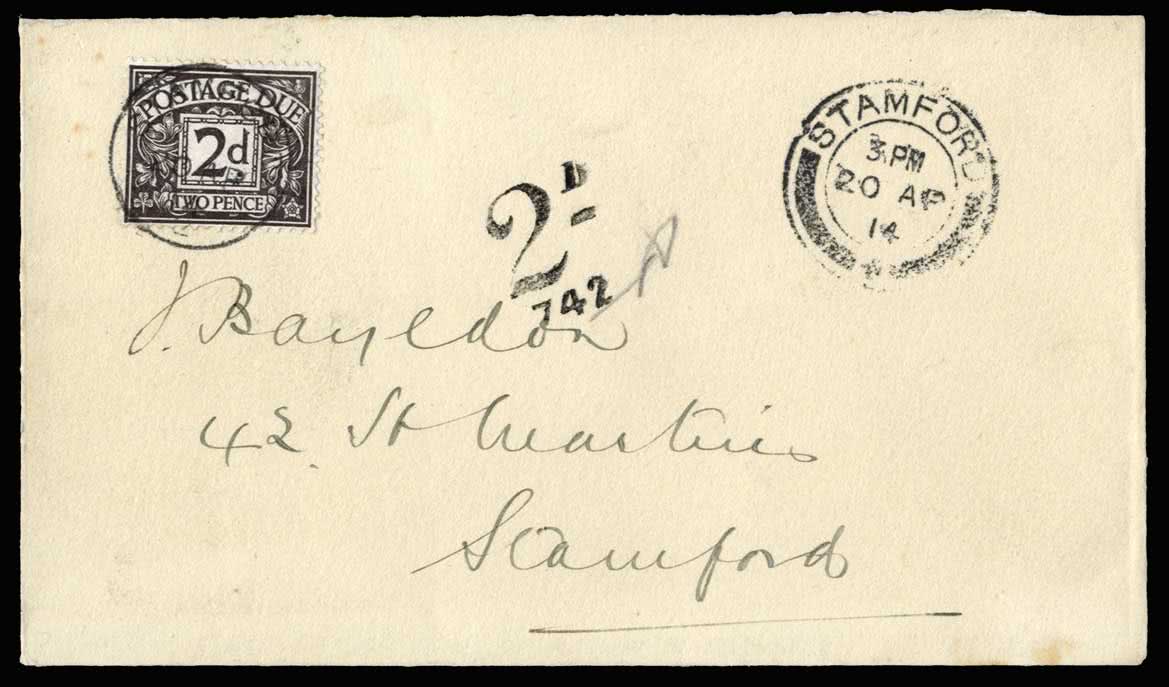 POSTAGE DUE
2d
TWO PENCE
2D
742
STAMFORD
3 PM
20 AP
14
J. Bayldon
42 St Martins
Stamford